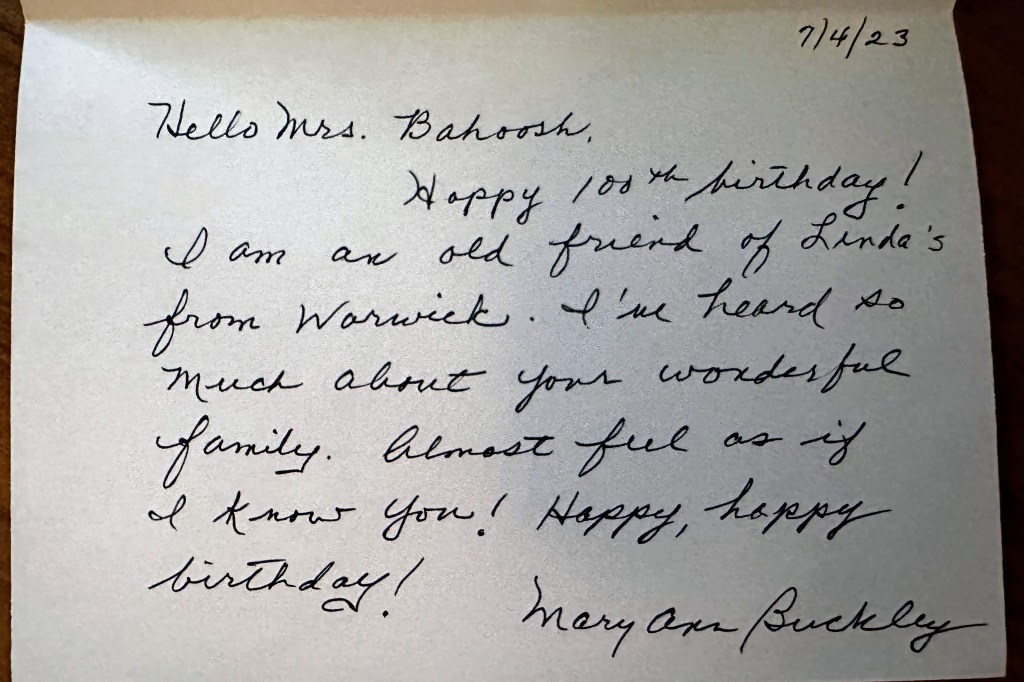 7/4/23
Hello Mrs. Bahoosh,
Happy 100th birthday!
I am an old friend of Linda's
from Warwick. I've heard so
much about your wonderful
family. Almost feel as if
I know you! Happy, happy
birthday!
Mary Ann Buckley